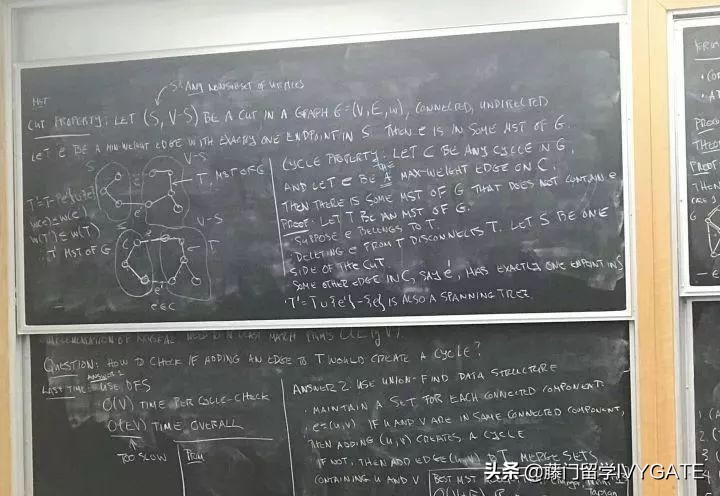 MST
S: ANY NONSUBSET OF VERTICES
CUT PROPERTY: LET (S, V-S) BE A CUT IN A GRAPH G=(V,E,w), CONNECTED, UNDIRECTED
LET e BE A MIN-WEIGHT EDGE WITH EXACTLY ONE ENDPOINT IN S. THEN e IS IN SOME MST OF G.
S
V-S
T, MST OF G
e
e'
w(e)≤w(e')
w(T')≤w(T)
T' MST OF G
S
V-S
T
e
e'
e'∈C
CYCLE PROPERTY: LET C BE ANY CYCLE IN G,
AND LET e BE A MAX-WEIGHT EDGE ON C.
THE
THEN THERE IS SOME MST OF G THAT DOES NOT CONTAIN e
PROOF: LET T BE AN MST OF G.
· SUPPOSE e BELONGS TO T.
· DELETING e FROM T DISCONNECTS T. LET S BE ONE
SIDE OF THE CUT.
· SOME OTHER EDGE IN C, SAY e', HAS EXACTLY ONE ENPOINT IN S
· T'=T∪{e'}-{e} IS ALSO A SPANNING TREE
QUESTION: HOW TO CHECK IF ADDING AN EDGE TO T WOULD CREATE A CYCLE?
ANSWER 1
LAST TIME: USE DFS
O(V) TIME PER CYCLE-CHECK
O(EV) TIME OVERALL
TOO SLOW
ANSWER 2: USE UNION-FIND DATA STRUCTURE
· MAINTAIN A SET FOR EACH CONNECTED COMPONENT.
· e=(u,v) IF U AND V ARE IN SAME CONNECTED COMPONENT,
THEN ADDING (u,v) CREATES A CYCLE
IF NOT, THEN ADD EDGE (u,v) MERGE SETS
CONTAINING U AND V
BEST MST
PROOF
THEO
PROOF
THEN
G
头条@藤门留学IVYGATE